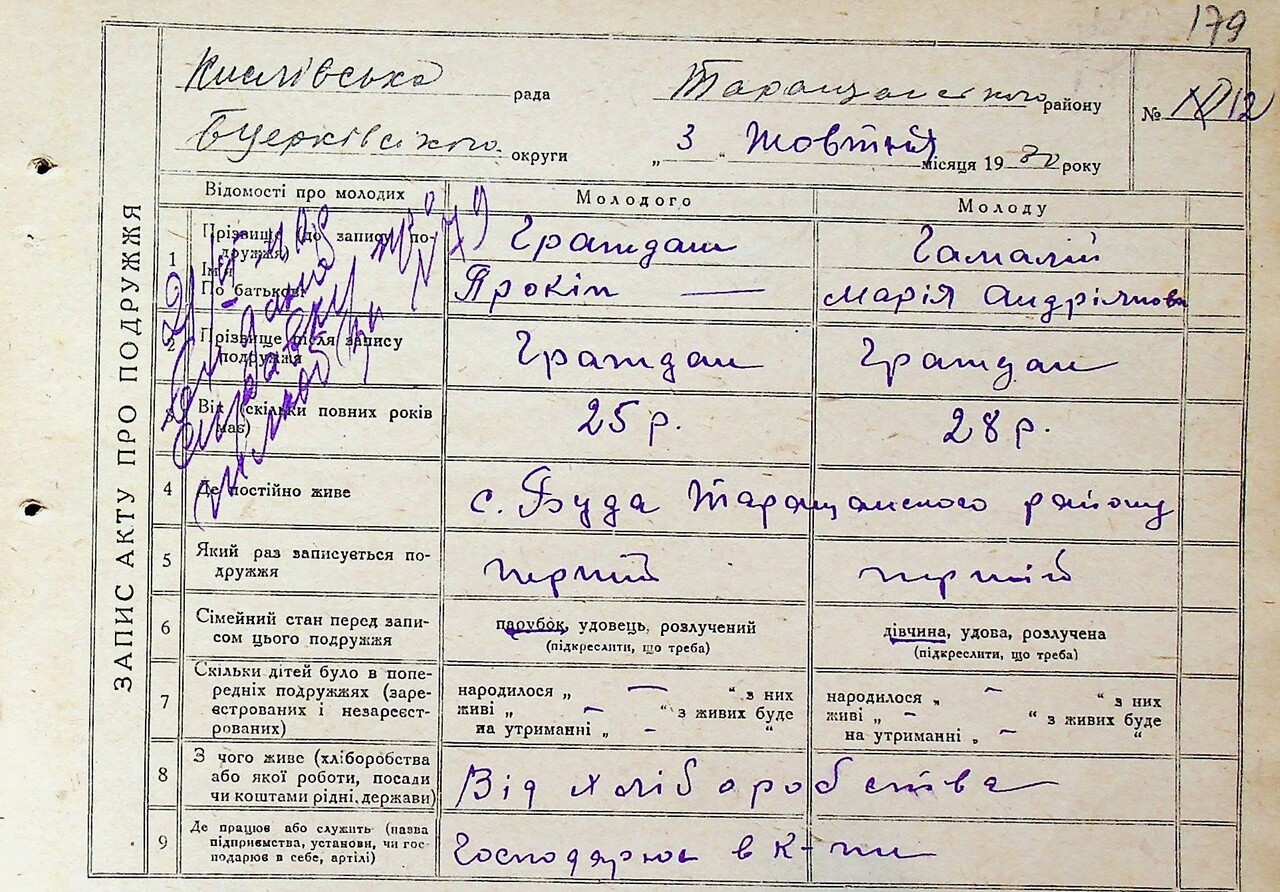 179
Кислівська рада Таращанського району № 12
Бцерківського округи „ 3 “ Жовтня місяця 1930 року
ЗАПИС АКТУ ПРО ПОДРУЖЖЯ
Відомості про молодих Молодого Молоду
1 Прізвище (до запису подружжя) Граждан Гамалій
Ім'я
По батькові Прокіп — Марія Андріянова
2 Прізвище після запису подружжя Граждан Граждан
3 Вік (скільки повних років має) 25 р. 28 р.
4 Де постійно живе с. Буда Таращанского району
5 Який раз записується по-
дружжя перший перший
6 Сімейний стан перед запи- парубок, удовець, розлучений дівчина, удова, розлучена
сом цього подружжя (підкреслити, що треба) (підкреслити, що треба)
7 Скільки дітей було в попе-
редніх подружжях (заре- народилося „ — “ з них народилося „ — “ з них
єстрованих і незареєст- живі „ — “ з живих буде живі „ — “ з живих буде
рованих) на утриманні „ — “ на утриманні „ — “
8 З чого живе (хліборобства
або якої роботи, посади Від хліборобства
чи коштами рідні, держави)
9 Де працює або служить (назва
підприємства, установи, чи гос-
подарює в себе, артілі) Господарює в К-ти